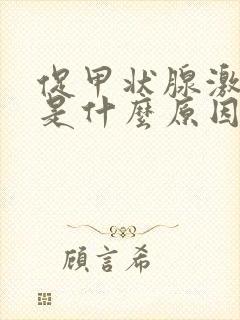 促甲状腺激
是什麼原因
顾言希